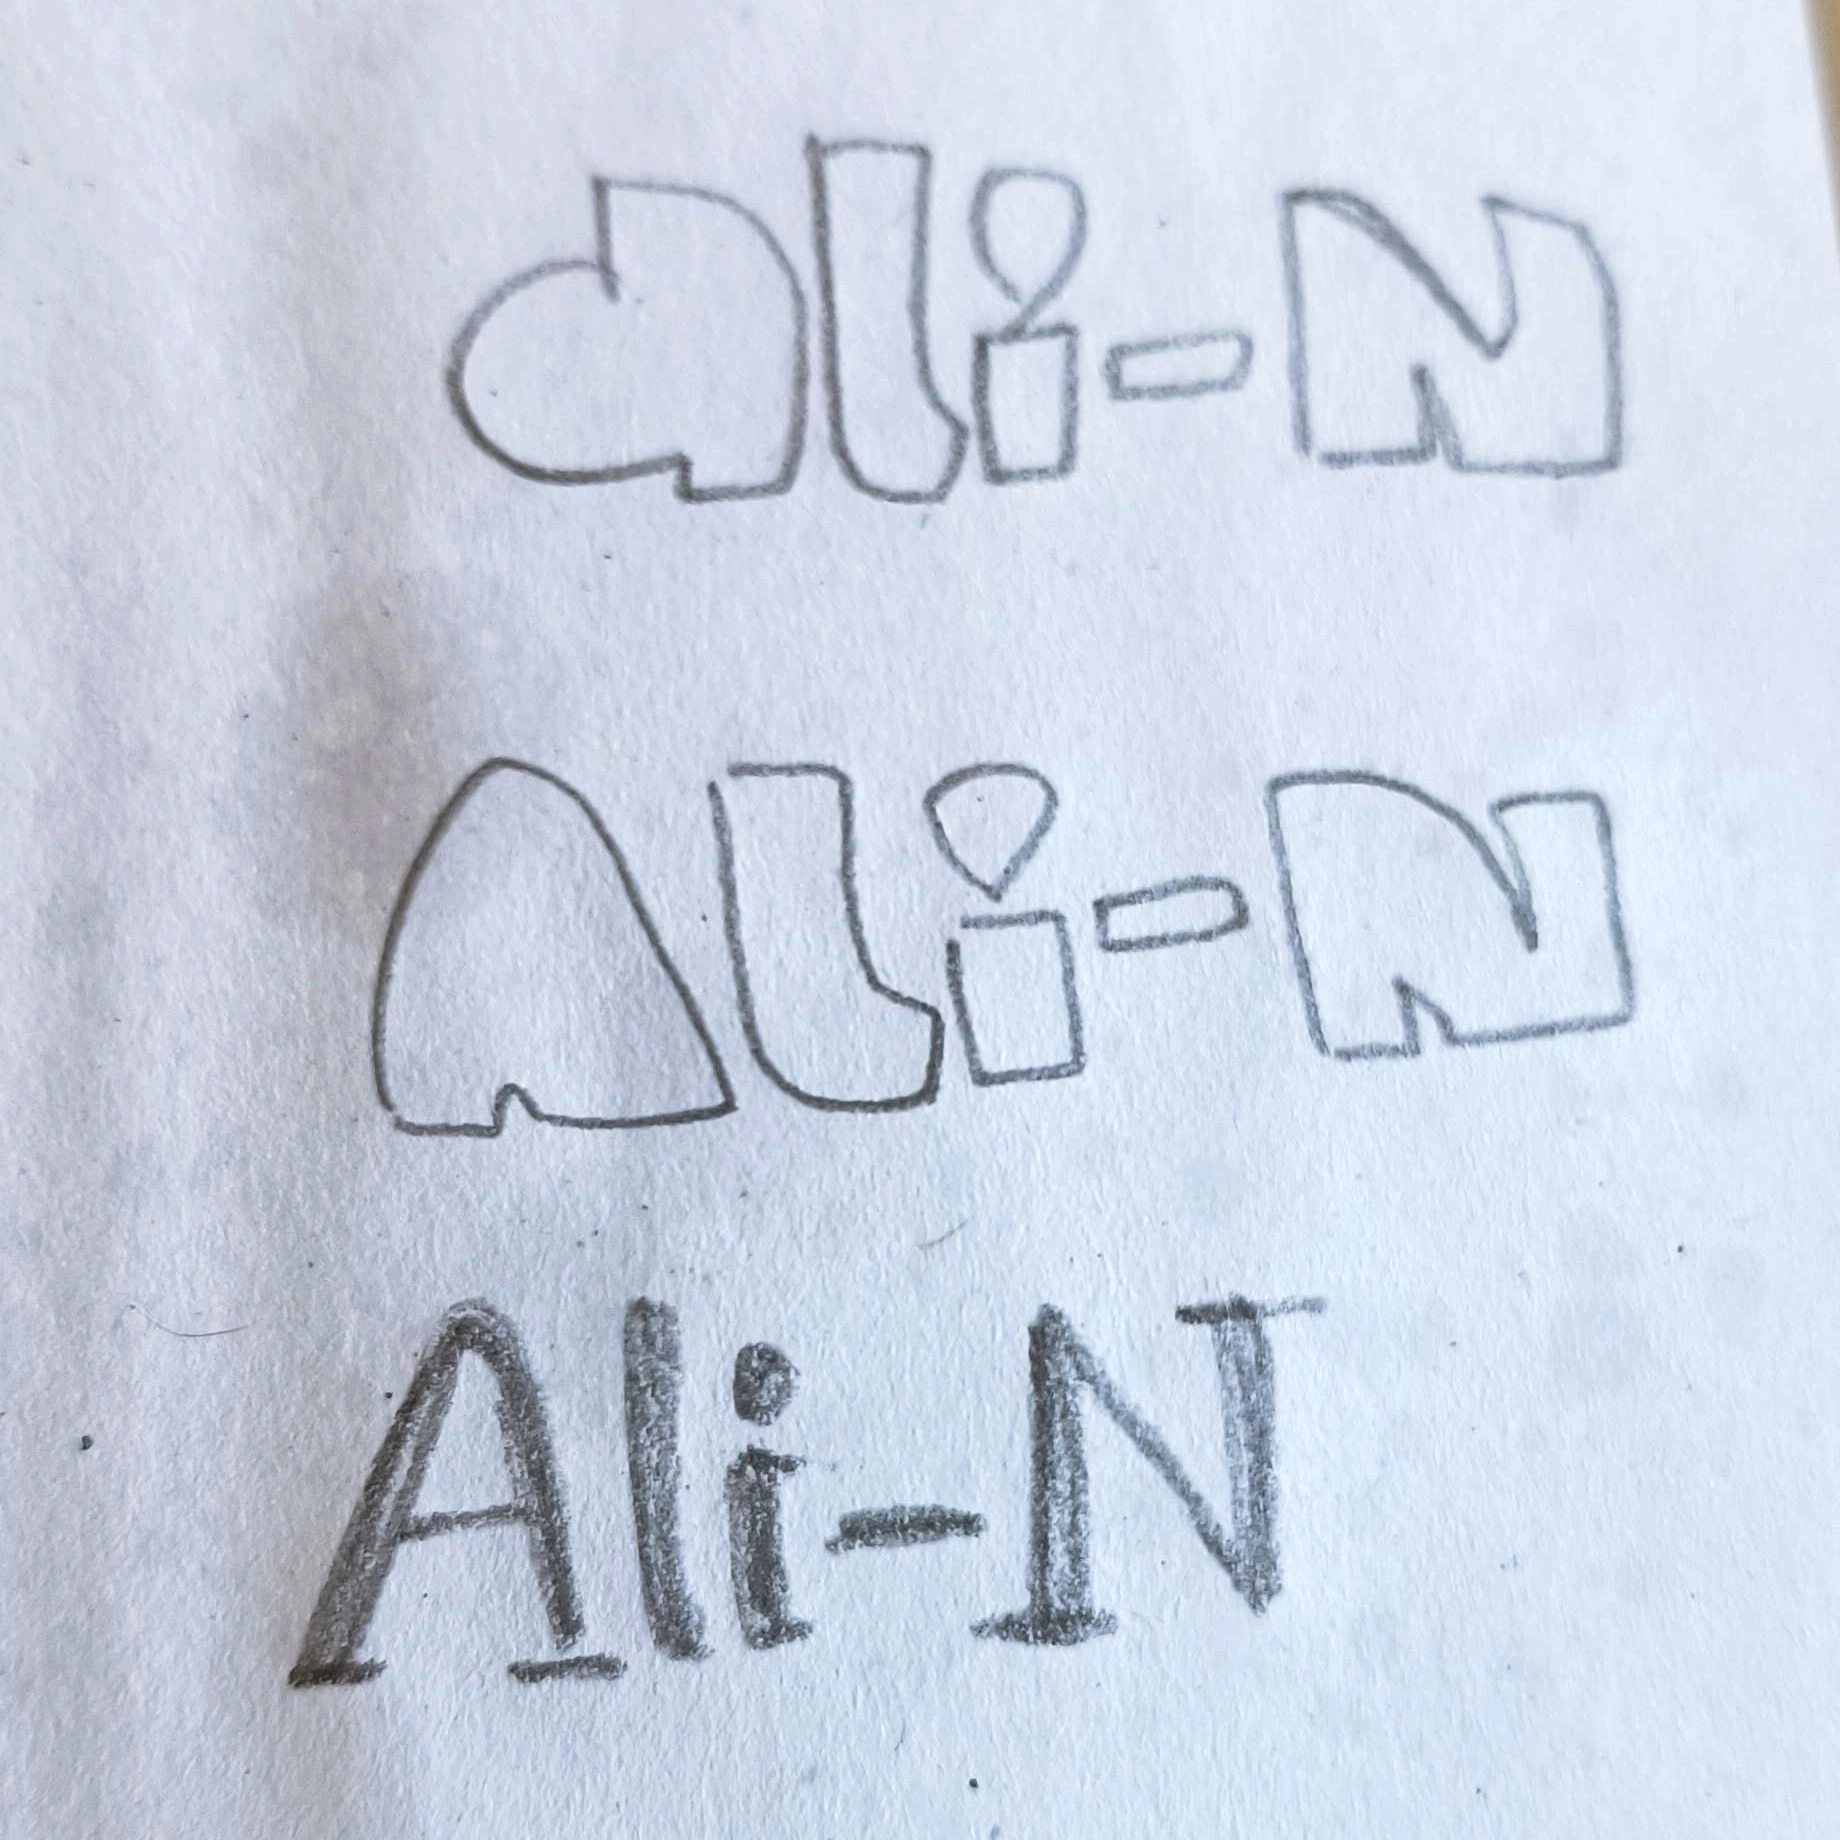 ali-N
Ali-N
Ali-N